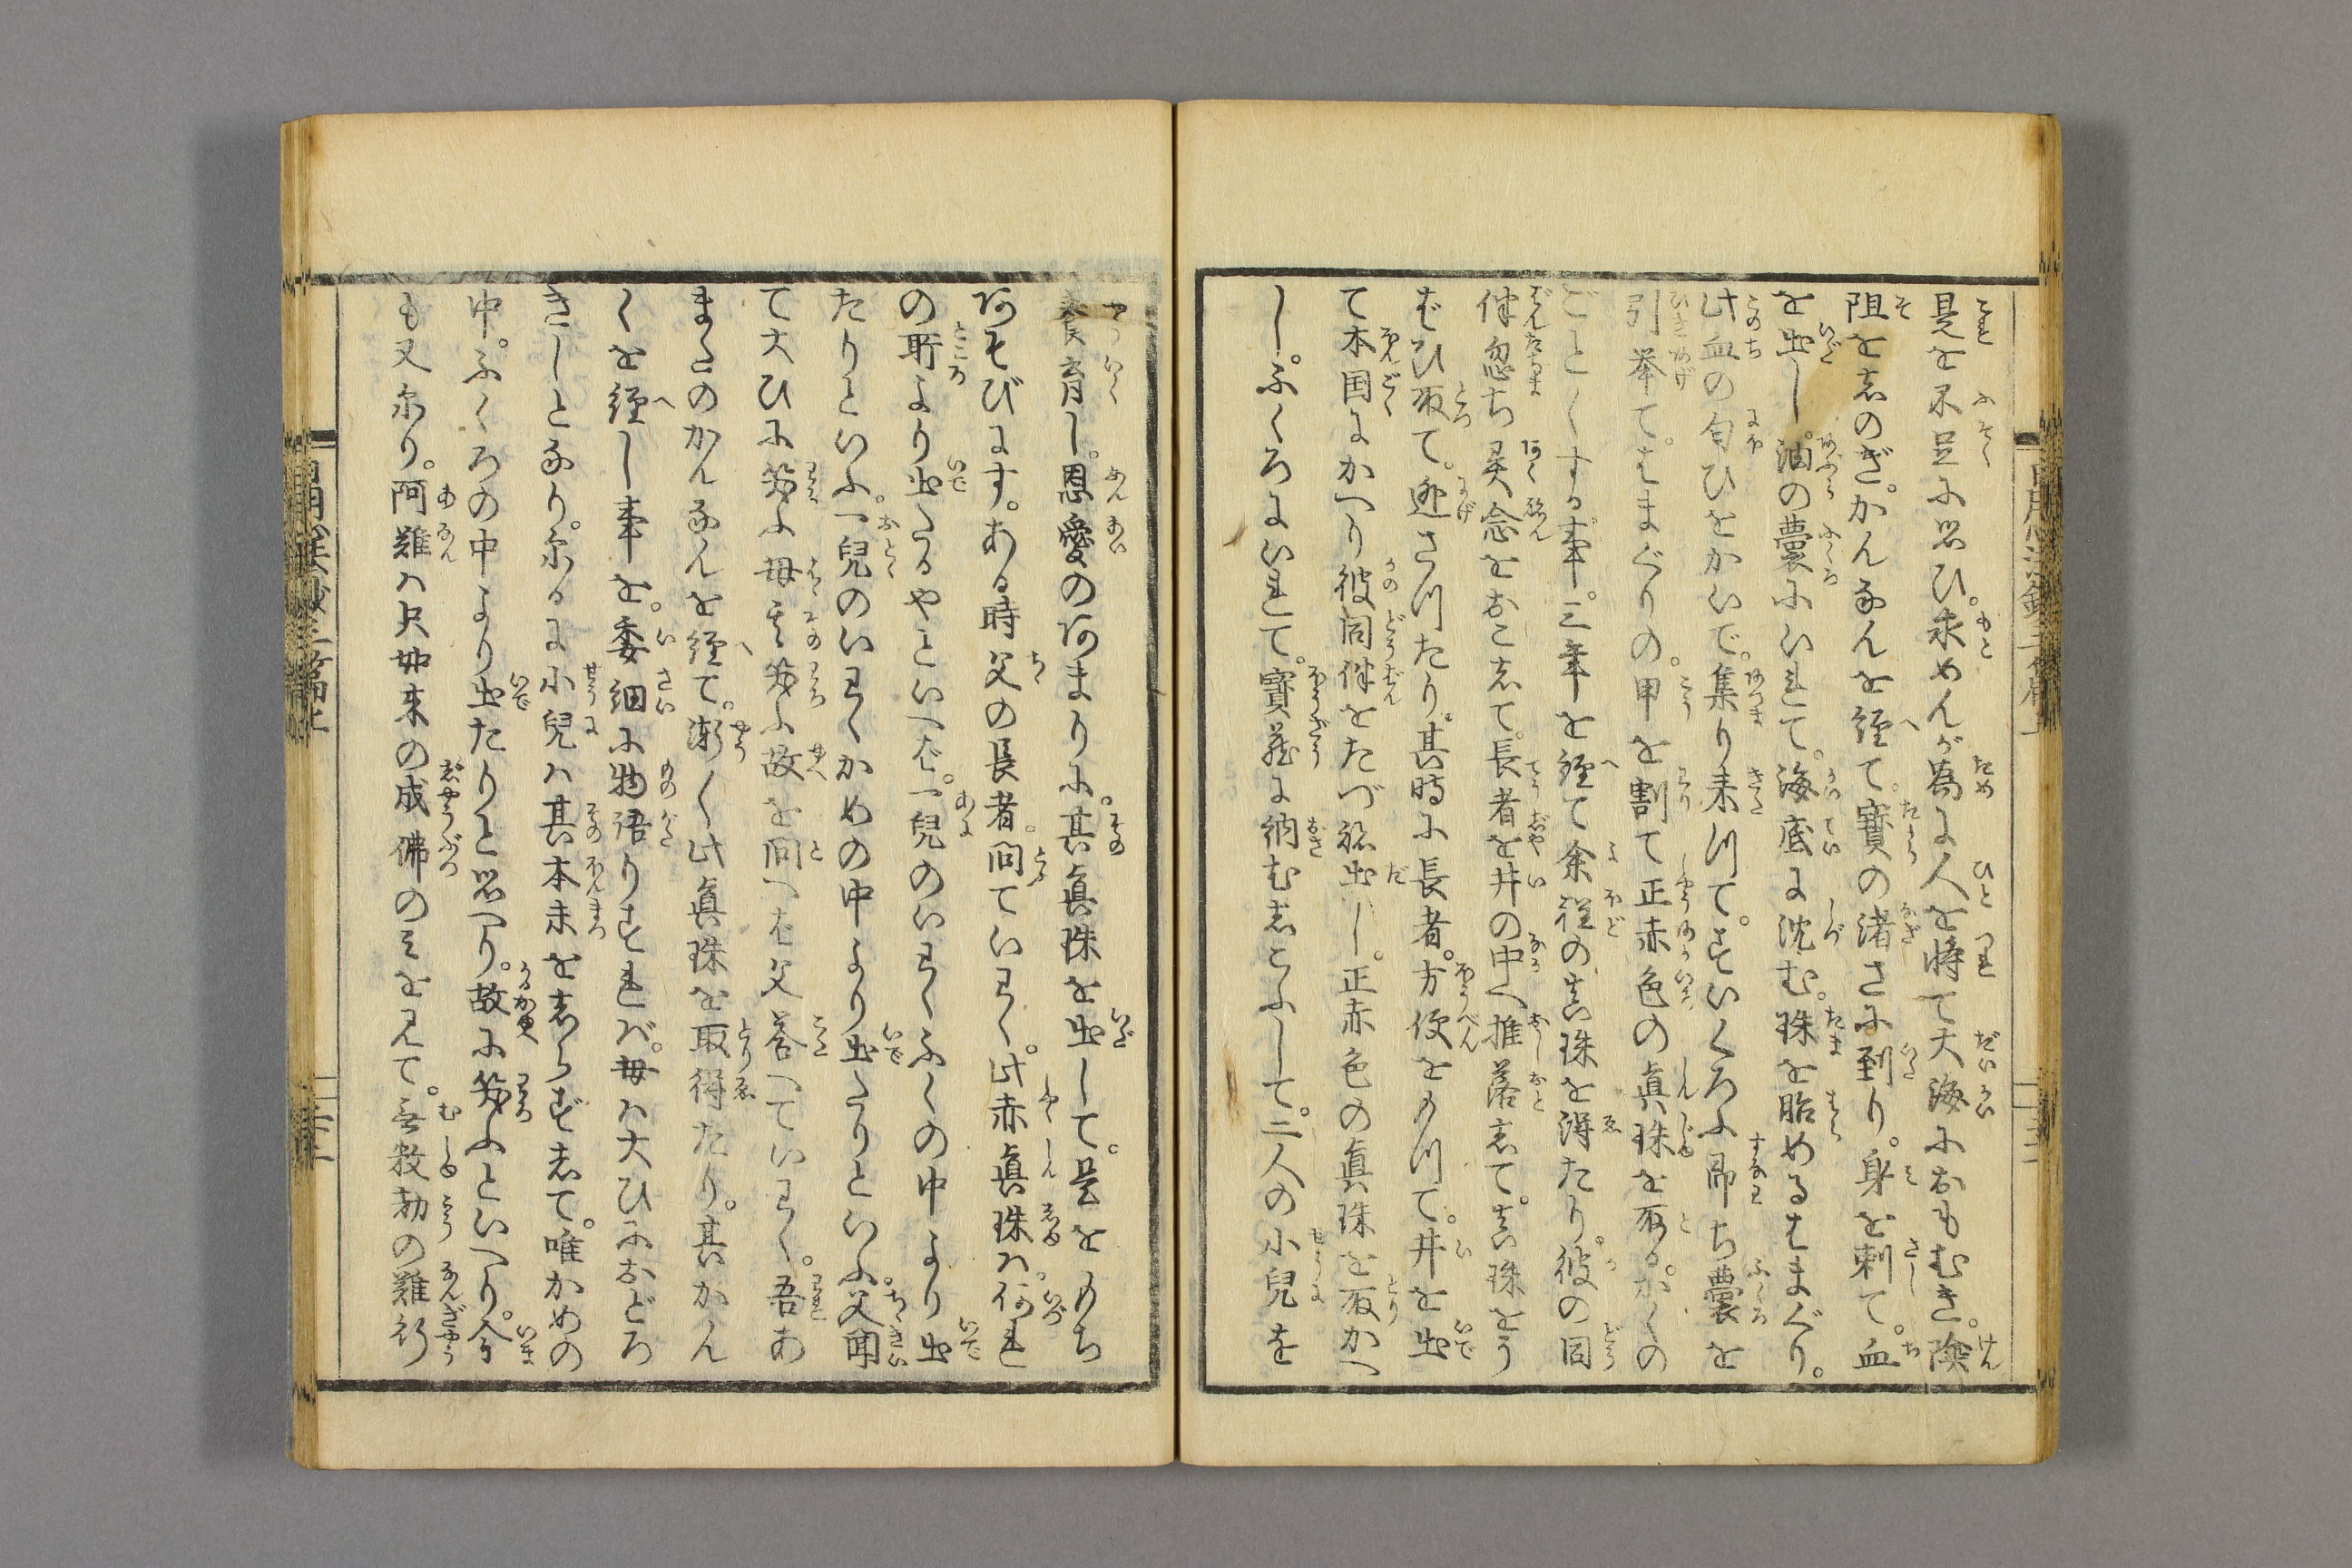 是を不足に思ひ。求めんが為に人を将て大海におもむき。険
阻をしのぎ。かんなんを経て。寳の渚さに到り。身を刺て。血
を出し。油の嚢にいれて。海底に沈む。珠を胎めるはまぐり。
此血の匂ひをかいで。集り来つて。すいくろふ即ち嚢を
引挙て。はまぐりの。甲を割て正赤色の真珠を取る。かくの
ごとくする事。三年を経て余程の真珠を得たり。彼の同
伴忽ち悪念をおこして。長者を井の中へ推落して。真珠をう
ばひ取て。逃さつたり。其時に長者。方便をもつて。井を出
て本国にかへり彼同伴をたづね出し。正赤色の真珠を取かへ
し。ふくろにいれて。寳蔵に納むしかふして。二人の小兒を
養育し。恩愛のあまりに。其真珠を出して。是をもち
あそびにす。ある時父の長者。問ていわく。此赤真珠ハ。何れ
の所より出たるやといへば。一兒のいわくふくの中より出
たりといふ。一兒のいわくかめの中より出たりといふ。父聞
て大ひに笑ふ母其笑ふ故を問へば父答へていわく。吾あ
またのかんなんを経て。漸く此真珠を取得たり。其かん
くを経し事を。委細に物語りすれバ。母ハ大ひにおどろ
きしとなり。尓るに小兒ハ其本末をしらずして。唯かめの
中。ふくろの中より出たりと思へり。故に笑ふといへり。今
も又尓り。阿難ハ只如来の成佛のミを見て。無数劫の難行